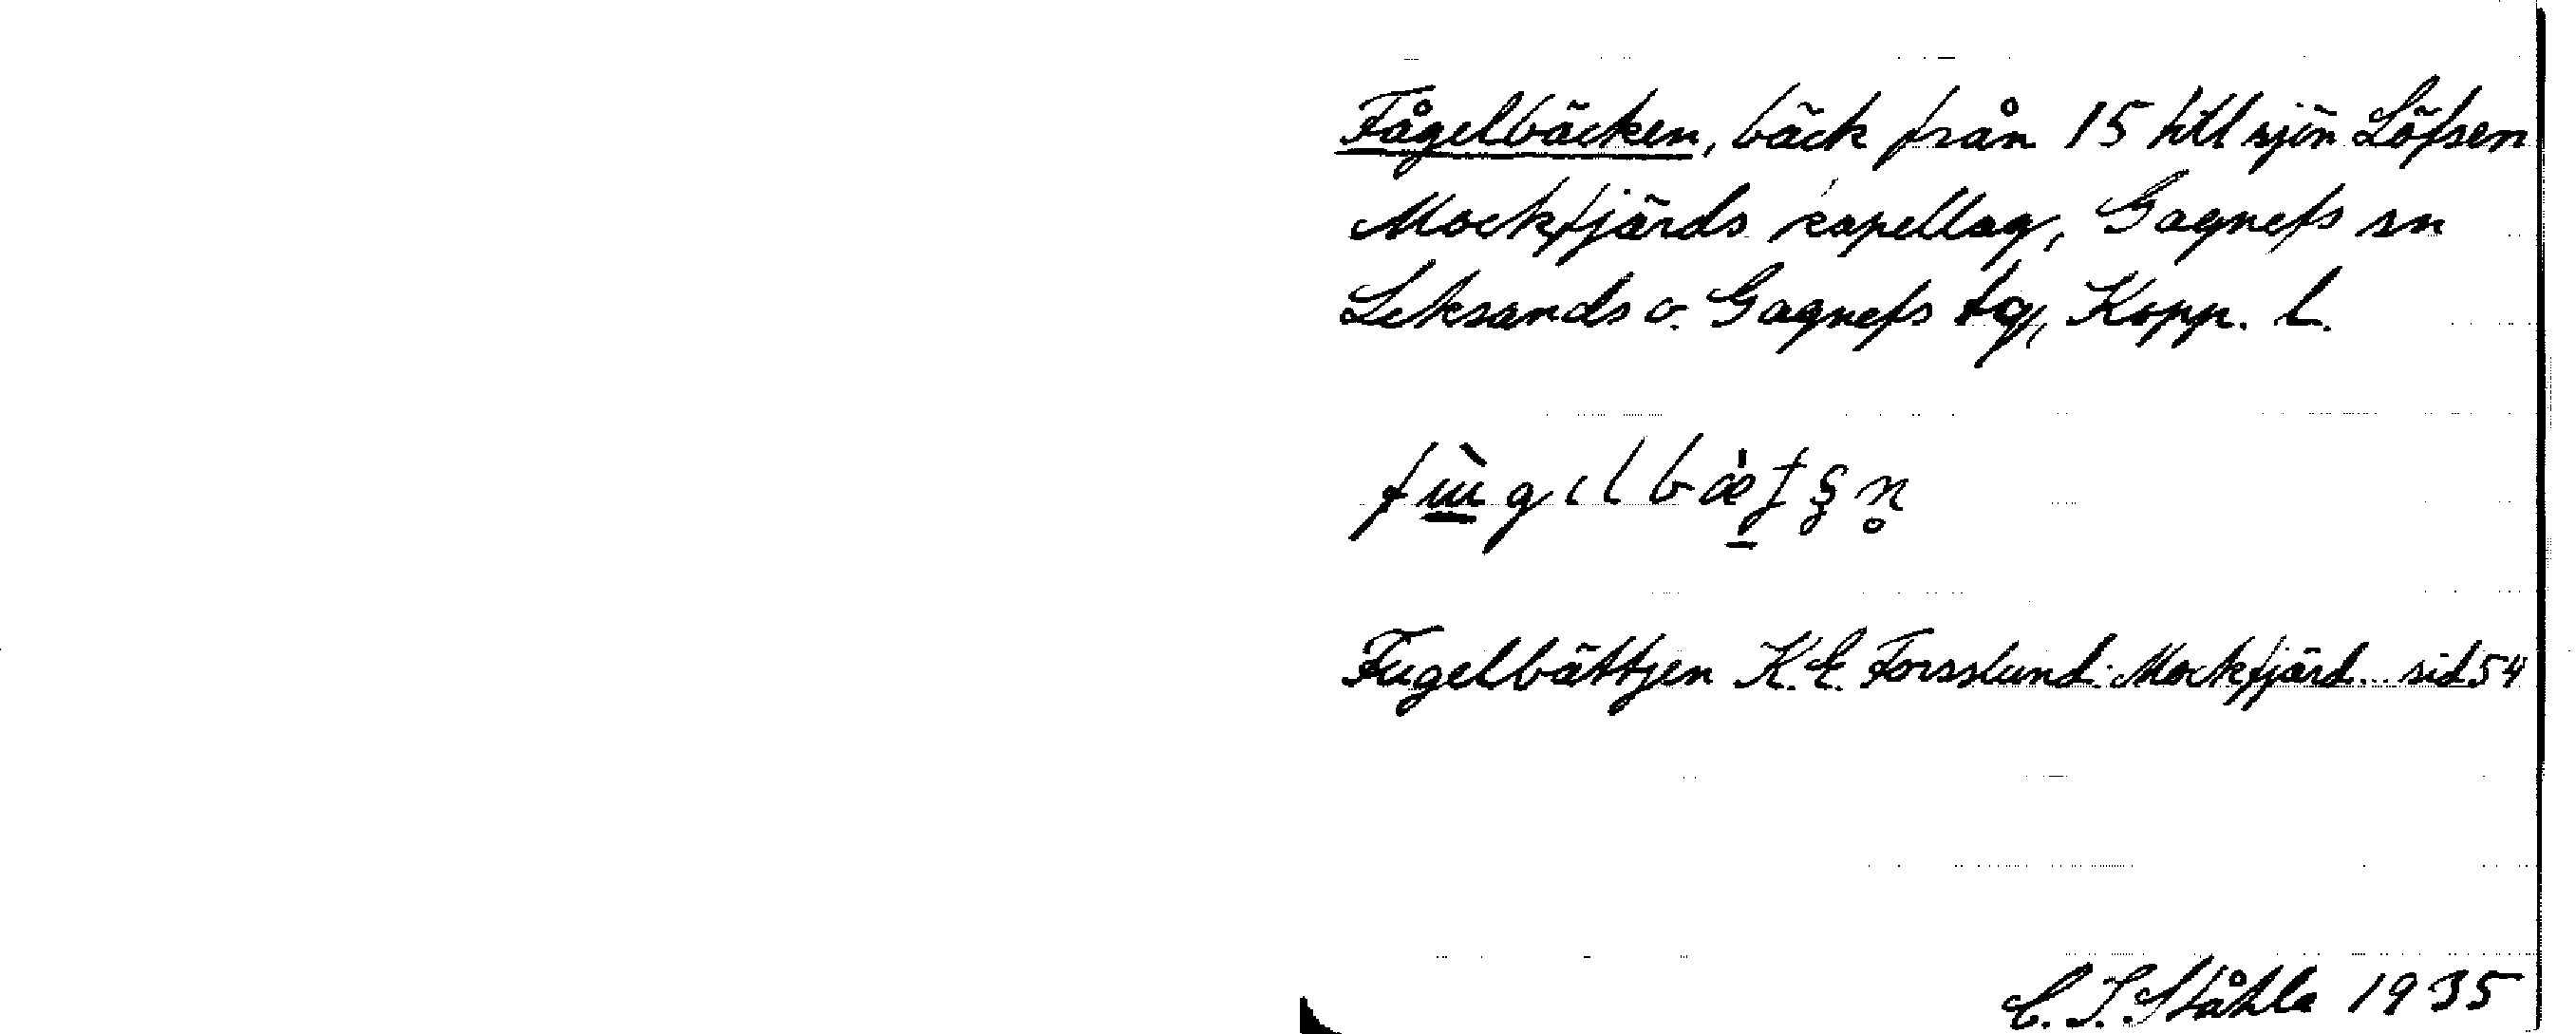 Fågelbäcken, bäck från 15 till sjön Löfsen
Mockfjärds kapellag, Gagnefs sn
Leksands o. Gagnefs tg, Kopp. l.
Fugelbättjen K.E. Forsslund: Mockfjärd... sid 54
C. I. Ståhle 1935